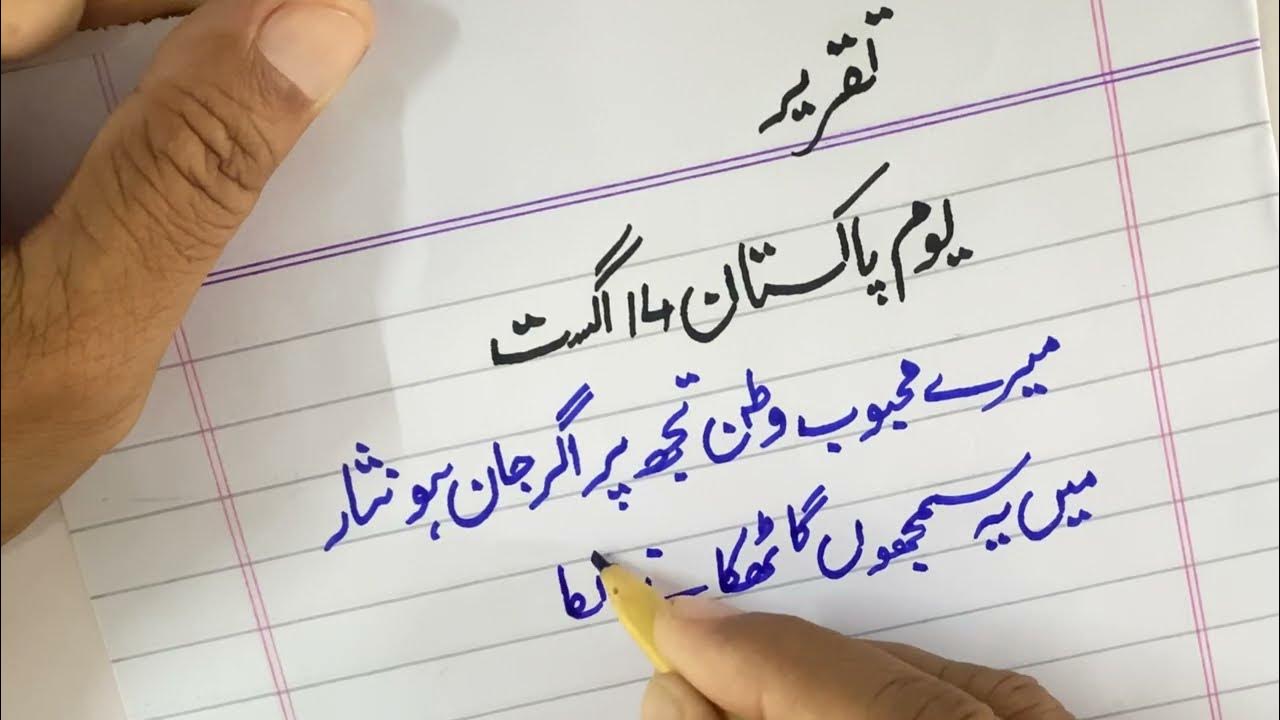 تقریر
یوم پاکستان 14 اگست
میرے محبوب وطن تجھ پر اگر جان ہو نثار
میں یہ سمجھوں گا ٹھکانے لگا